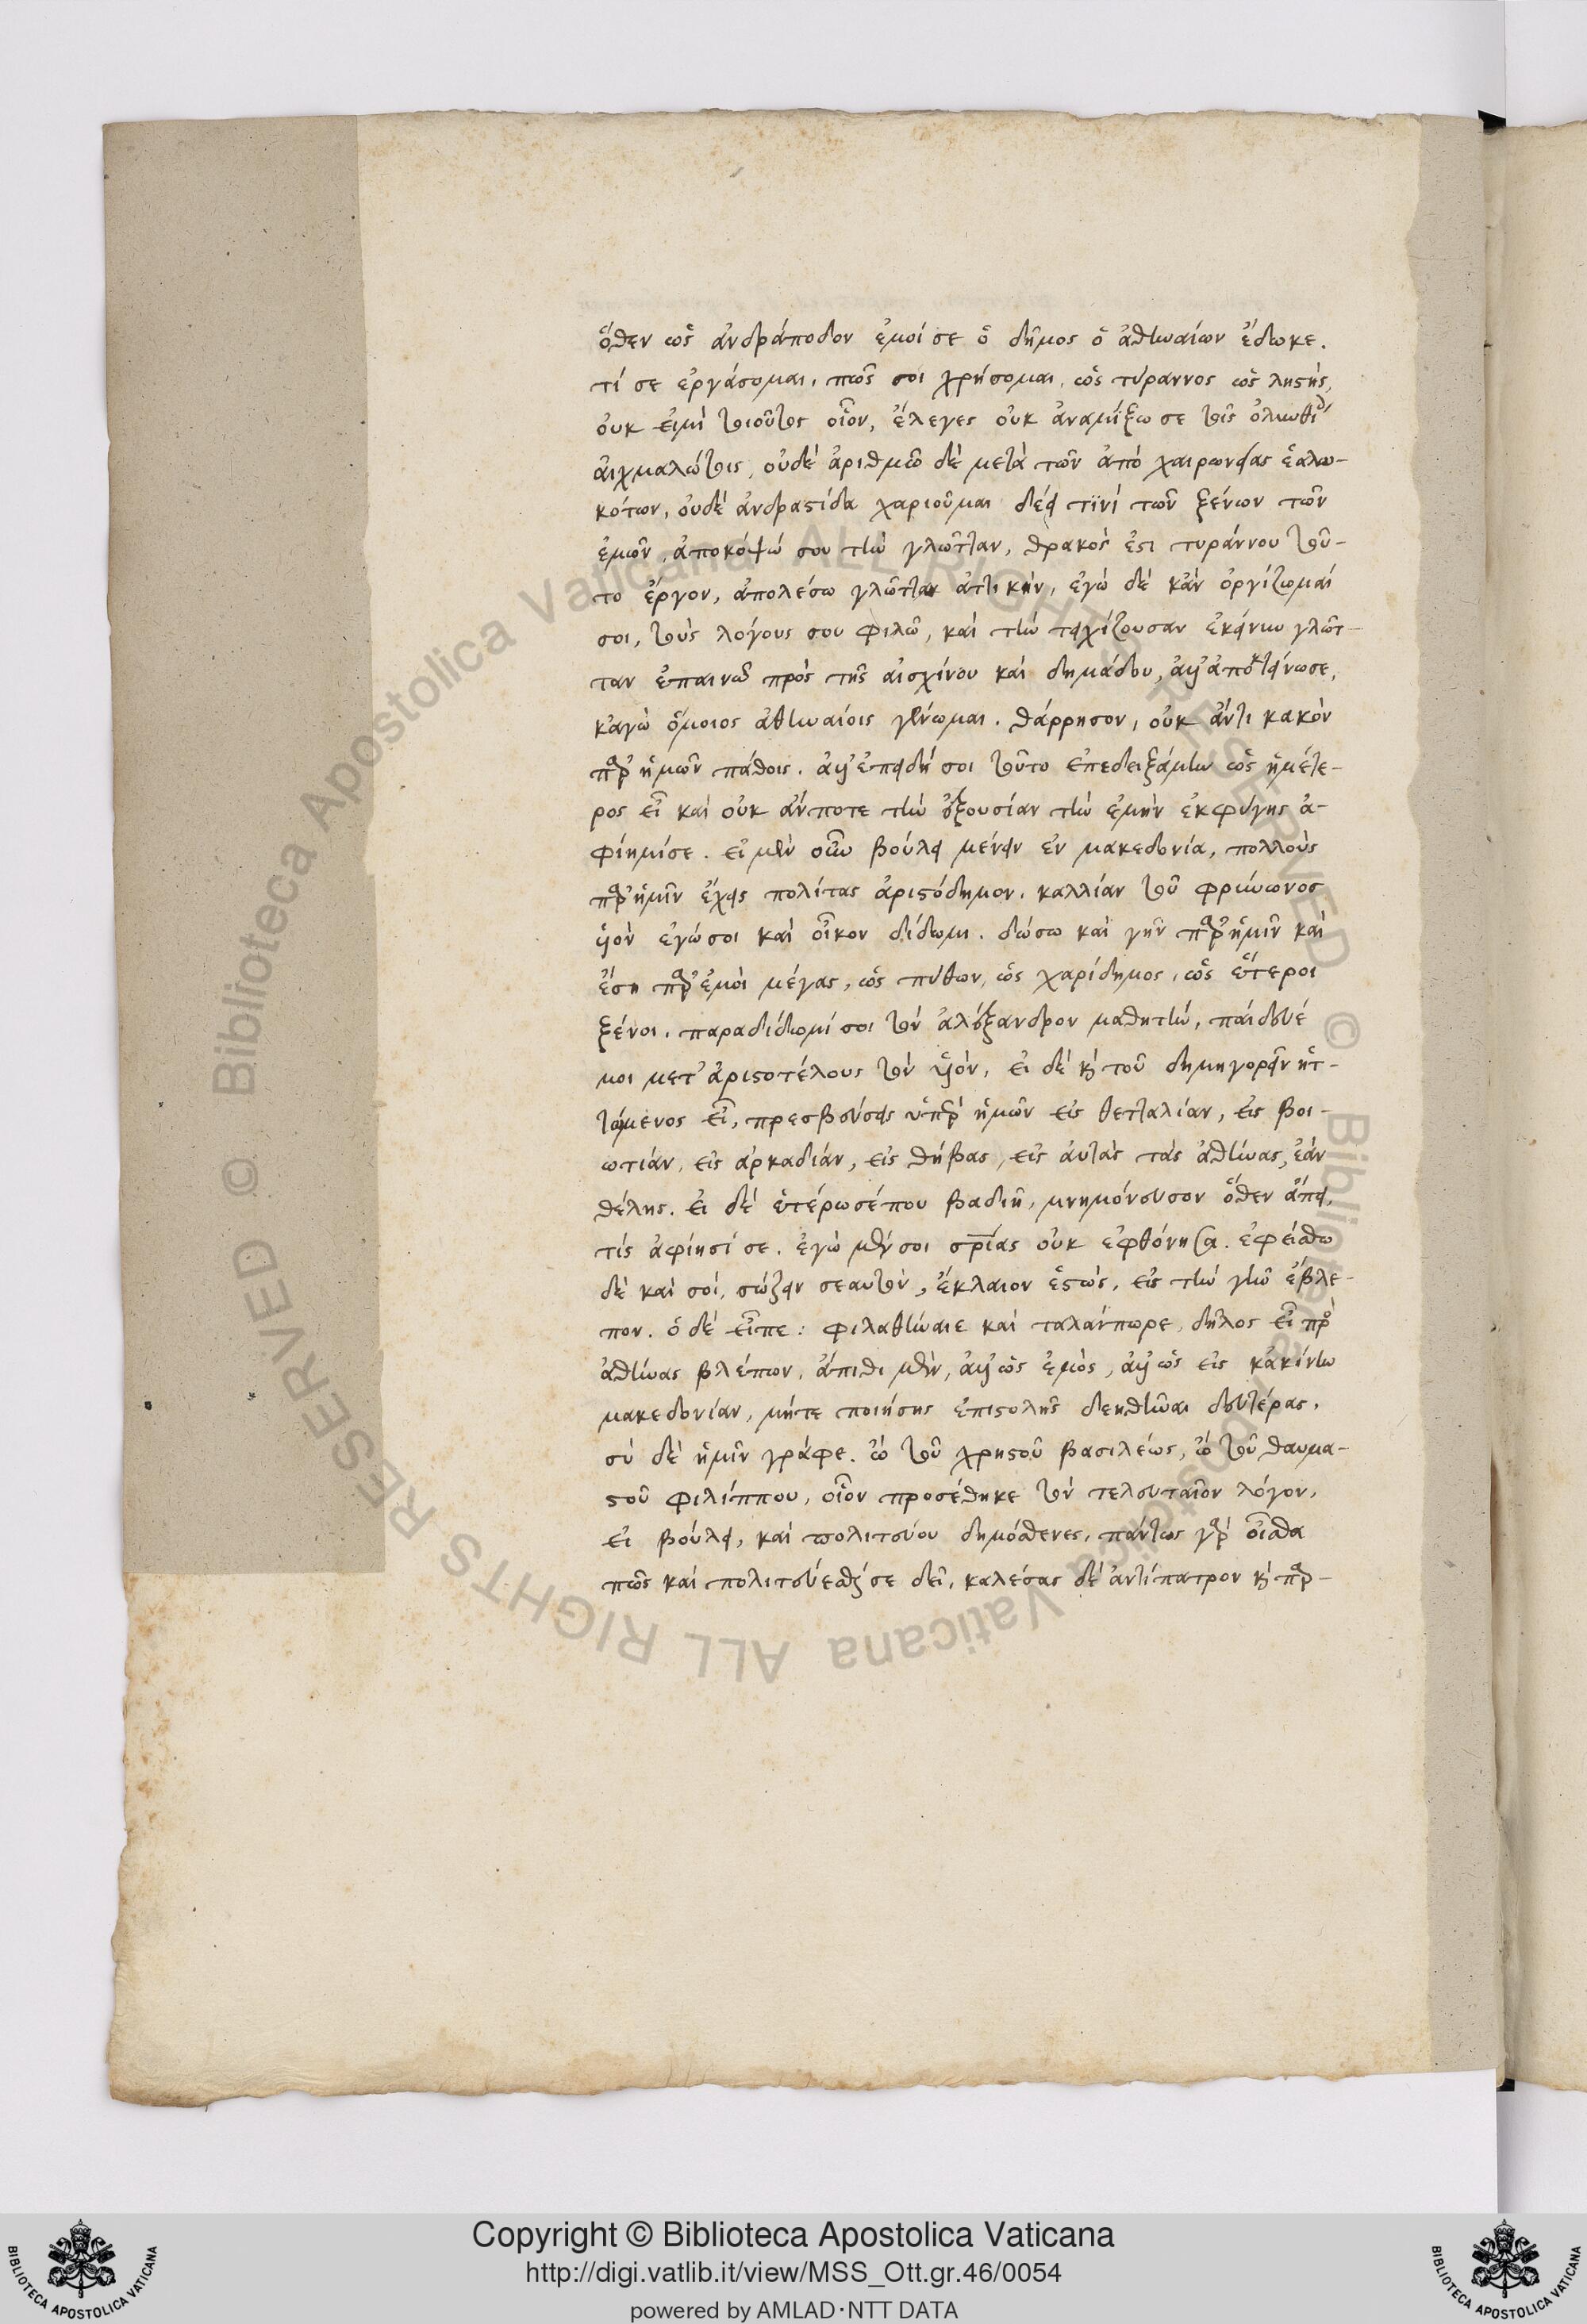 ὅθεν ὡς ἀνδράποδον ἐμοί σε ὁ δῆμος ὁ ἀθηναίων ἔδωκε.
τί σε ἐργάσομαι, πῶς σοι χρήσομαι, ὡς τύραννος ὡς ληστὴς,
οὐκ εἰμὶ τοιοῦτος οἷον, ἔλεγες οὐκ ἀναμίξω σε τοῖς
αἰχμαλώτοις, οὐδὲ ἀριθμῶ δὲ μετὰ τῶν ἀπὸ χαιρωνείας ἑαλω-
κότων, οὐδὲ χαριοῦμαι τινὶ τῶν ξένων τῶν
ἐμῶν, ἀποκόψω σου τὴν γλῶτταν, θρακός ἐστι τυράννου τοῦ-
το ἔργον, ἀπολέσω γλῶτταν ἀττικὴν, ἐγὼ δὲ κἂν ὀργίζωμαί
σοι, τοὺς λόγους σου φιλῶ, καὶ τὴν τειχίζουσαν ἐκείνην γλῶτ-
ταν ἐπαινῶ πρὸς τῆς αἰσχίνου καὶ δημάδου, ἀλλ' ἀποκτείνω σε,
κἀγὼ ὅμοιος ἀθηναίοις γένωμαι. θάρρησον, οὐκ ἄν τι κακὸν
παρ' ἡμῶν πάθοις. ἀλλ' ἐπειδή σοι τοῦτο ἐπεδειξάμην ὡς ἡμέτε-
ρος εἶ καὶ οὐκ ἄν ποτε τὴν ἐξουσίαν τὴν ἐμὴν ἐκφύγης ἀ-
φίημί σε. εἰ μὲν οὖν βούλει μένειν ἐν μακεδονία, πολλοὺς
παρ' ἡμῖν ἔχεις πολίτας ἀριστόδημον, καλλίαν τοῦ φρύνωνος
υἱὸν ἐγώ σοι καὶ οἶκον δίδωμι. δώσω καὶ γῆν παρ' ἡμῖν καὶ
ἔση παρ' ἐμοὶ μέγας, ὡς πύθων, ὡς χαρίδημος, ὡς ἕτεροι
ξένοι. παραδίδωμί σοι τὸν ἀλέξανδρον μαθητὴν, παίδευέ
μοι μετ' ἀριστοτέλους τὸν υἱὸν, εἰ δὲ καὶ τοῦ δημηγορεῖν ἡτ-
τώμενος εἶ, πρεσβεύσεις ὑπὲρ ἡμῶν εἰς θετταλίαν, εἰς βοι-
ωτιάν, εἰς ἀρκαδιάν, εἰς θήβας, εἰς αὐτὰς τὰς ἀθήνας, ἐὰν
θέλης. εἰ δὲ ἑτέρωσέ που βαδιῆ, μνημόνευσον ὅθεν ἄπει,
τίς ἀφίησί σε. ἐγὼ μέν σοι σωτηρίας οὐκ ἐφθόνησα. ἐφείσθω
δὲ καὶ σοὶ, σώζειν σεαυτὸν, ἔκλαιον ἑστὼς, εἰς τὴν γῆν ἔβλε-
πον. ὁ δὲ εἶπε: φιλαθήναιε καὶ ταλαίπωρε, δῆλος εἶ πρὸς
ἀθήνας βλέπων, ἄπιθι μὲν, ἀλλ' ὡς ἐμὸς, ἀλλ' ὡς εἰς κἀκείνην
μακεδονίαν, μήτε ποιήσης ἐπιστολῆς δεηθῆναι δευτέρας,
σὺ δὲ ἡμῖν γράφε. ὢ τοῦ χρηστοῦ βασιλέως, ὢ τοῦ θαυμα-
στοῦ φιλίππου, οἷον προσέθηκε τὸν τελευταῖον λόγον,
εἰ βούλει, καὶ πολιτεύου δημόσθενες, πάντως γὰρ οἶσθα
πῶς καὶ πολιτεύεσθαί σε δεῖ, καλέσας δὲ ἀντίπατρον καὶ παρ-
Copyright © Biblioteca Apostolica Vaticana
http://digi.vatlib.it/view/MSS_Ott.gr.46/0054
powered by AMLAD·NTT DATA